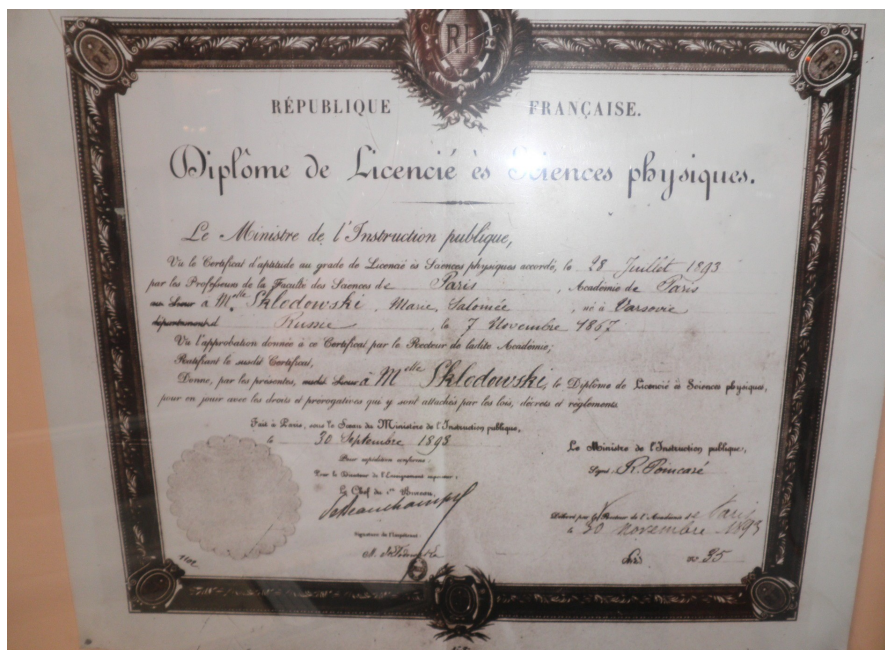 RF
RF
RF
RÉPUBLIQUE FRANÇAISE.
Diplôme de Licencié ès Sciences physiques.
Le Ministre de l'Instruction publique,
Vu le Certificat d'aptitude au grade de Licencié ès Sciences physiques accordé, le 28 Juillet 1893
par les Professeurs de la Faculté des Sciences de Paris, Académie de Paris
au Sieur à Melle Sklodowski, Marie, Salomée, né à Varsovie
département d Russie, le 7 Novembre 1867
Vu l'approbation donnée à ce Certificat par le Recteur de ladite Académie;
Ratifiant le susdit Certificat,
Donne, par les présentes, audit Sieur à Melle Sklodowski, le Diplôme de Licencié ès Sciences physiques,
pour en jouir avec les droits et prérogatives qui y sont attachés par les lois, décrets et règlements.
Fait à Paris, sous le Sceau du Ministère de l'Instruction publique,
le 30 Septembre 1893
Pour expédition conforme:
Pour le Directeur de l'Enseignement supérieur:
Le Chef du Bureau,
Le Ministre de l'Instruction publique,
Signé: R. Poincaré
Délivré par le Recteur de l'Académie de Paris
le 30 novembre 1893
Signature de l'Impétrant:
No 95